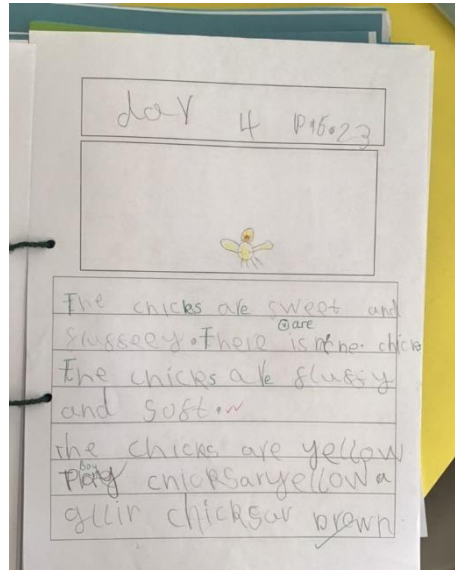 day 4 p16.23
The chicks are sweet and
sluseey. There is nine chicks
are
The chicks are slussy
and sost.
the chicks are yellow
boy chicksaryellow a
gllir chicksar brewn